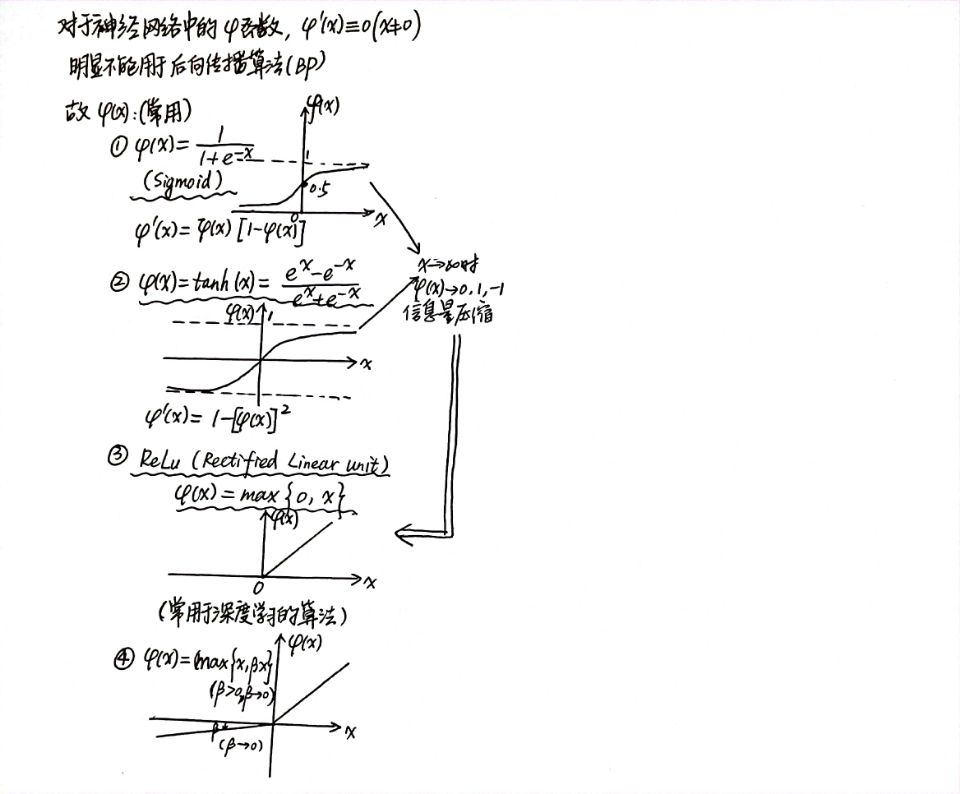 对于神经网络中的φ函数, φ'(x)≡0(x≠0)
明显不能用于后向传播算法(BP)
故 φ(x):(常用)
φ(x)
① φ(x)= 1/(1+e^-x)
1
(Sigmoid)
0.5
0
x
φ'(x)=φ(x)[1-φ(x)]
② φ(x)=tanh(x)= (e^x-e^-x)/(e^x+e^-x)
x→∞时
φ(x)→0,1,-1
信息量压缩
φ(x)
1
x
φ'(x)= 1-[φ(x)]^2
③ ReLu (Rectified Linear unit)
φ(x)=max{0, x}
φ(x)
0
x
(常用于深度学习的算法)
φ(x)
④ φ(x)=max{x,βx}
(β>0,β→0)
x
β
(β→0)